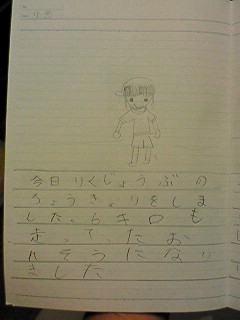 今日りくじょうぶの
ちょうきょりをしま
した。6キロも
走って、たお
れそうになり
ました